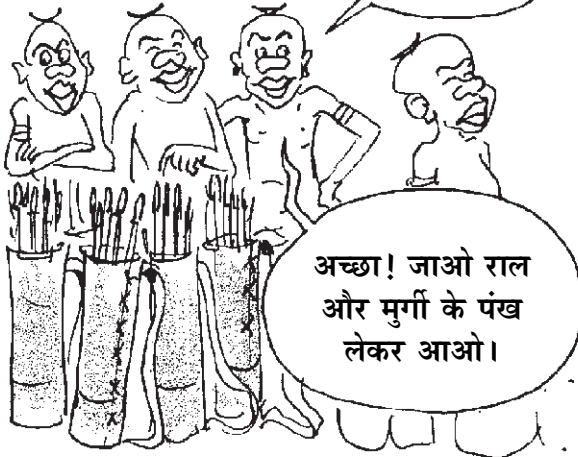 अच्छा! जाओ राल
और मुर्गी के पंख
लेकर आओ।